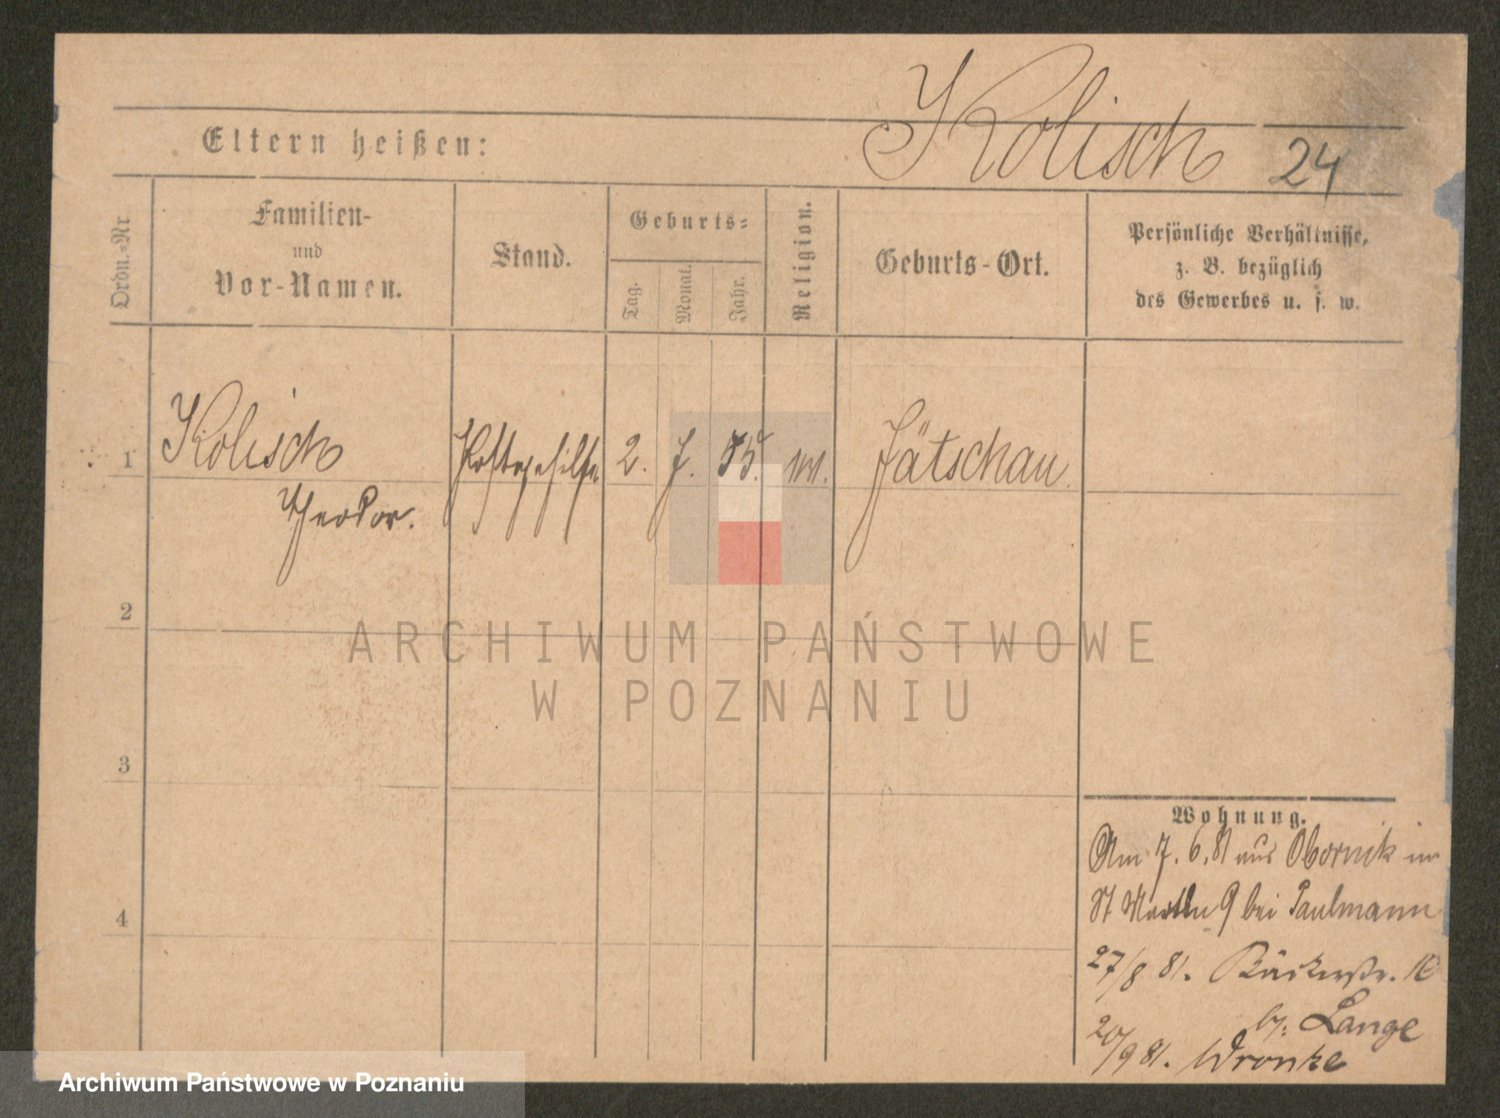 Kolisch 24
Eltern heißen:
Ordn.-Nr.
Familien-
und
Vor-Namen.
Stand.
Geburts-
Tag.
Monat.
Jahr.
Religion.
Geburts-Ort.
Persönliche Verhältnisse,
z. B. bezüglich
des Gewerbes u. s. w.
1 Kolisch Postgehilfe 2. 7. 55. Jätschau
Theodor.
2
3
4
Wohnung.
Am 7. 6. 81 aus Obornik in
St Martin 9 bei Paulmann
27/8 81. Bäckerstr. 16
b/: Lange
20/9 81. Wronke
ARCHIWUM PAŃSTWOWE
W POZNANIU
Archiwum Państwowe w Poznaniu